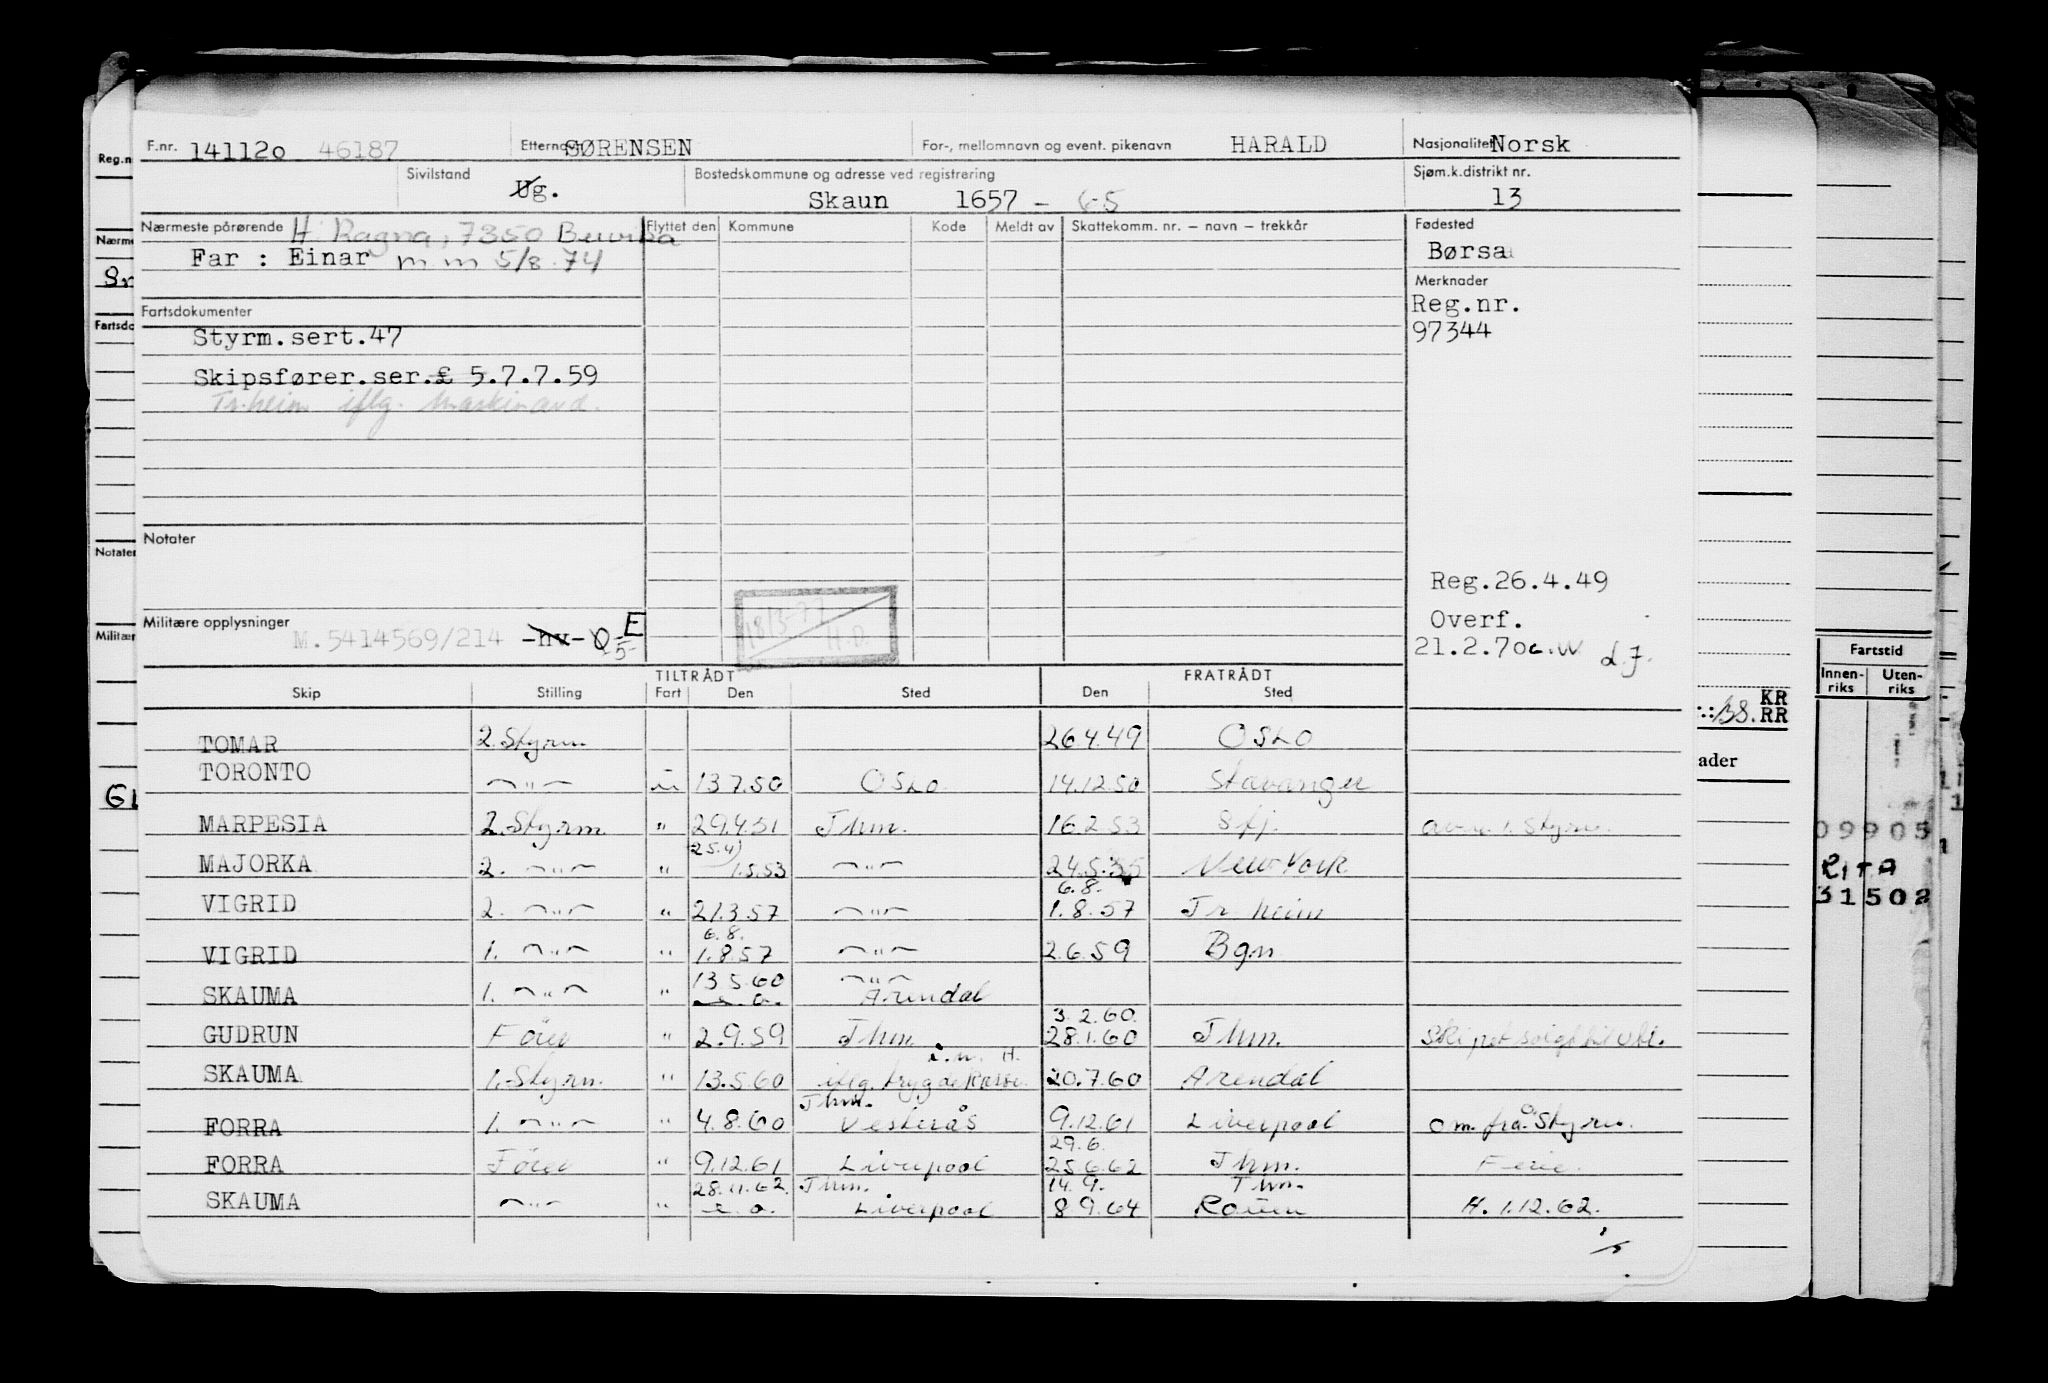 F.nr. 141120 46187 Etternavn SØRENSEN For-, mellomnavn og event. pikenavn HARALD Nasjonalitet Norsk
Sivilstand Ug. Bostedskommune og adresse ved registrering Skaun 1657 - 65 Sjøm.k.distrikt nr. 13
Nærmeste pårørende H. Ragna, 7350 Buvika Flyttet den Kommune Kode Meldt av Skattekomm. nr. – navn – trekkår Fødested
Far : Einar m.m 5/8.74 Børsa
Merknader
Reg.nr.
97344
Fartsdokumenter
Styrm.sert.47
Skipsfører.ser.£ 5.7.7.59
Tr.heim iflg. Maskinavd.
Notater
Reg.26.4.49
Overf.
21.2.70
Militære opplysninger M.5414569/214 -hv- E
5-
18/3-77
H.D.
TILTRÅDT FRATRÅDT
Skip Stilling Fart Den Sted Den Sted
TOMAR 2. Styrm. 26.4.49 OSLO
TORONTO —"— u 13.7.50 OSLO 14.12.50 Stavanger
MARPESIA 2. Styrm. " 29.4.51 Thm. 16.2.53 Sfj. 1. Styrm.
25.4)
MAJORKA 2. —"— " 1.5.53 —"— 24.5.55 New York
6.8.
VIGRID 2. —"— " 21.3.57 —"— 1.8.57 Tr.heim
6.8.
VIGRID 1. —"— " 1.8.57 —"— 2.6.59 Bgn
13.5.60 —"—
SKAUMA 1. —"— " Arendal
3.2.60.
GUDRUN Förer " 2.9.59 Thm. 28.1.60 Thm. Skipet solgt til utl.
SKAUMA 1. Styrm. " 13.5.60 iflg. trygdekasse 20.7.60 Arendal
Thm.
FORRA 1. —"— " 4.8.60 Vesterås 9.12.61 Liverpool om. frå Styrm.
29.6.
FORRA Förer " 9.12.61 Liverpool 25.6.62 Thm. Ferie.
28.11.62. Thm. 14.9. Thm.
SKAUMA —"— " Liverpool 8.9.64 Rouen H. 1.12.62.
Reg.n
Nærme
Sr
Fartsdo
Notater
Militær
G1
KR
RR
ader
Fartstid
Innen-
riks
Uten-
riks
09905
RITA
31502